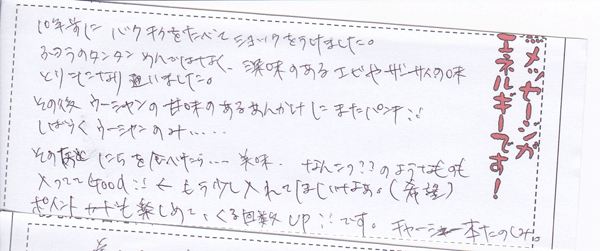 メッセージが
エネルギーです!
10年前に バクチウをたべて ショックをうけました。
ふつうのタンタンめんではなく、深味のあるエビやザーサイの味
とりこになり 通いました。
その後 ウーシャンの甘味のあるあんかけにまたパンチ!!
しばらくウーシャンのみ・・・・・
その にらを食べたら・・・ 美味。なんこつ??のようなものも
入ってて Good!! ← もう少し入れてほしいけどなぁ。(希望)
ポイントカードも楽しめて、くる回数UP!!です。チャーシュー